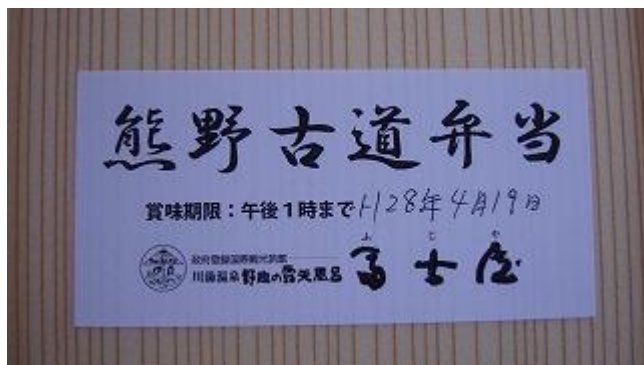 熊野古道弁当
賞味期限：午後1時まで H28年4月19日
政府登録国際観光旅館
川湯温泉 野趣の露天風呂
ふじや
冨士屋